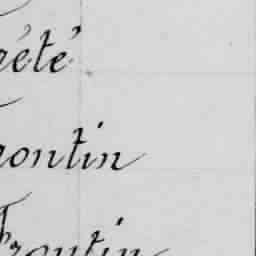 rété
rontin
Frontin